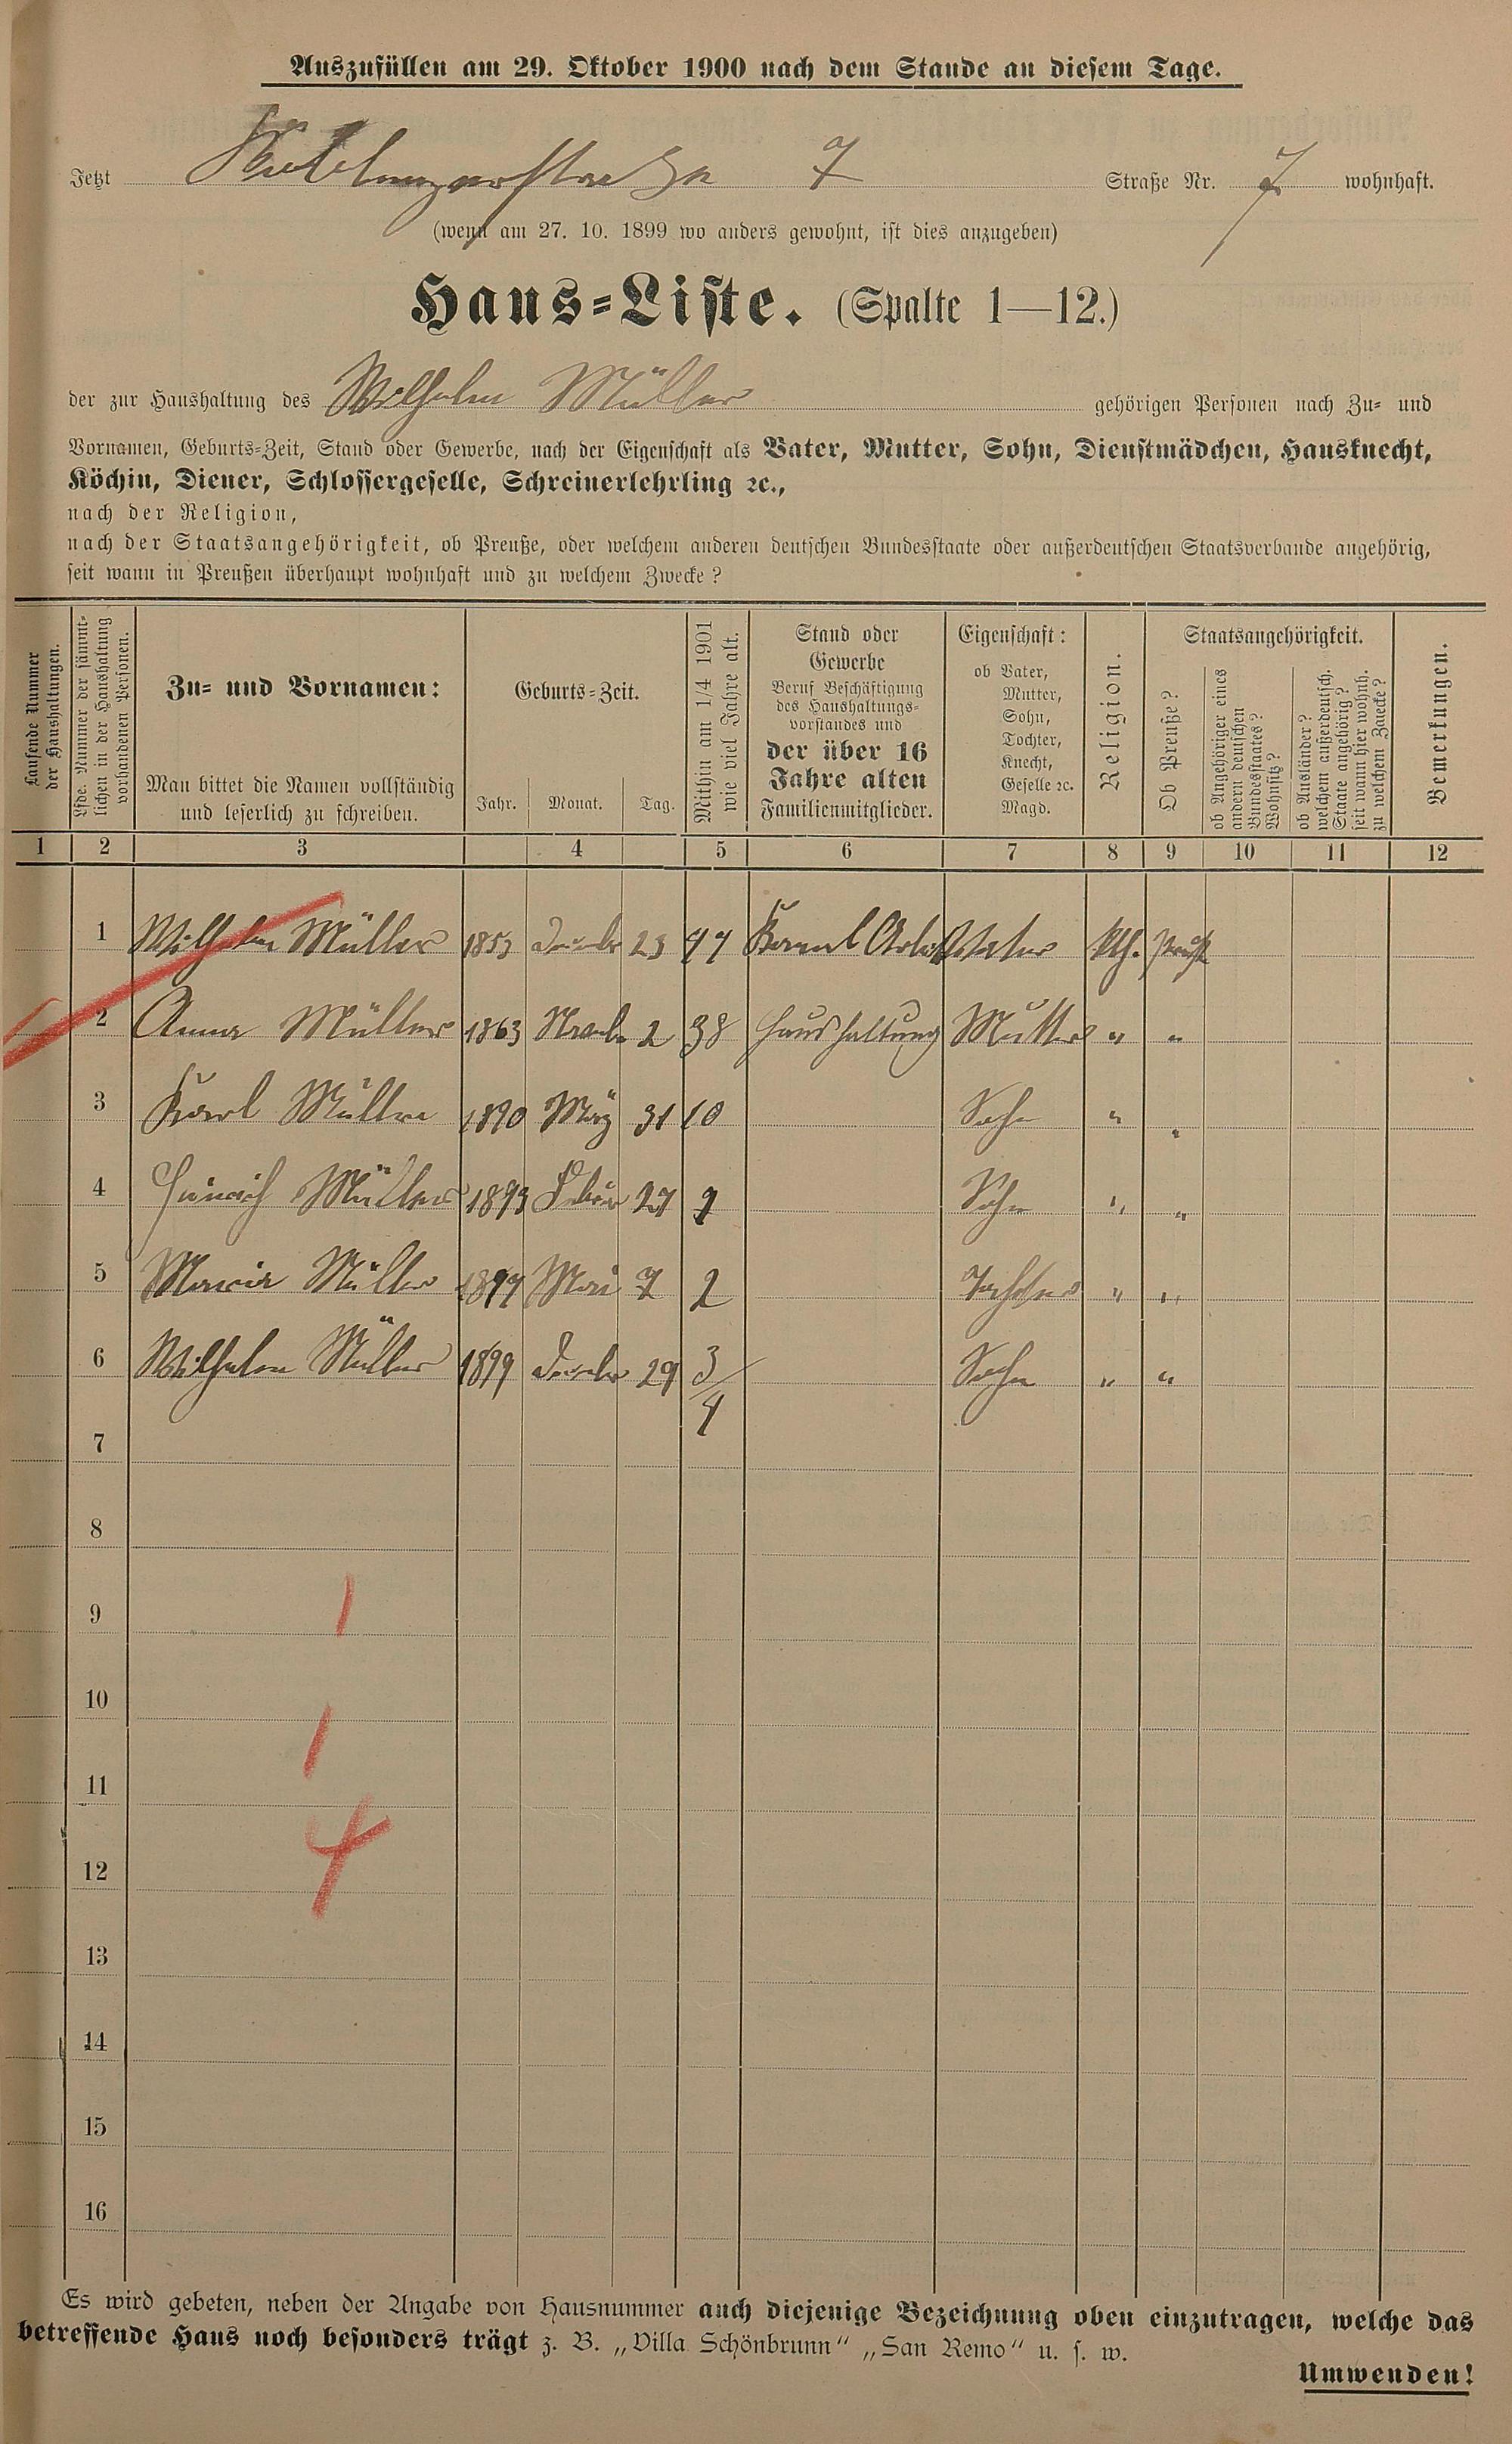 Auszufüllen am 29. Oktober 1900 nach dem Stande an diesem Tage.
Jetzt 7 Straße Nr. 7 wohnhaft.
(wenn am 27. 10. 1899 wo anders gewohnt, ist dies anzugeben)
Haus-Liste. (Spalte 1—12.)
der zur Haushaltung des Wilhelm Müller gehörigen Personen nach Zu- und
Vornamen, Geburts-Zeit, Stand oder Gewerbe, nach der Eigenschaft als Vater, Mutter, Sohn, Dienstmädchen, Hausknecht,
Köchin, Diener, Schlossergeselle, Schreinerlehrling ꝛc.,
nach der Religion,
nach der Staatsangehörigkeit, ob Preuße, oder welchem anderen deutschen Bundesstaate oder außerdeutschen Staatsverbande angehörig,
seit wann in Preußen überhaupt wohnhaft und zu welchem Zwecke?
Laufende Nummer
der Haushaltungen.
Lfde. Nummer der sämmt-
lichen in der Haushaltung
vorhandenen Personen.
Zu- und Vornamen:
Man bittet die Namen vollständig
und leserlich zu schreiben.
Geburts-Zeit.
Jahr. Monat. Tag.
Mithin am 1/4 1901
wie viel Jahre alt.
Stand oder
Gewerbe
Beruf Beschäftigung
des Haushaltungs-
vorstandes und
der über 16
Jahre alten
Familienmitglieder.
Eigenschaft:
ob Vater,
Mutter,
Sohn,
Tochter,
Knecht,
Geselle ꝛc.
Magd.
Religion.
Staatsangehörigkeit.
Ob Preuße?
ob Angehöriger eines
andern deutschen
Bundesstaates?
Wohnsitz?
ob Ausländer?
welchem außerdeutsch.
Staate angehörig?
seit wann hier wohnh.
zu welchem Zwecke?
Bemerkungen.
1 2 3 4 5 6 7 8 9 10 11 12
1 Wilhelm Müller 1853 23 47 Vater Kth.
2 Anna Müller 1863 2 38 Haushaltung Mutter " "
3 Karl Müller 1890 März 31 10 Sohn " "
4 Heinrich Müller 1893 27 Sohn " "
5 Maria Müller Mai 7 2 Tochter " "
6 Wilhelm Müller 1899 29 3/4 Sohn " "
7
8
9 1
10
1
11
12 4
13
14
15
16
Es wird gebeten, neben der Angabe von Hausnummer auch diejenige Bezeichnung oben einzutragen, welche das
betreffende Haus noch besonders trägt z. B. „Villa Schönbrunn“ „San Remo“ u. s. w.
Umwenden!